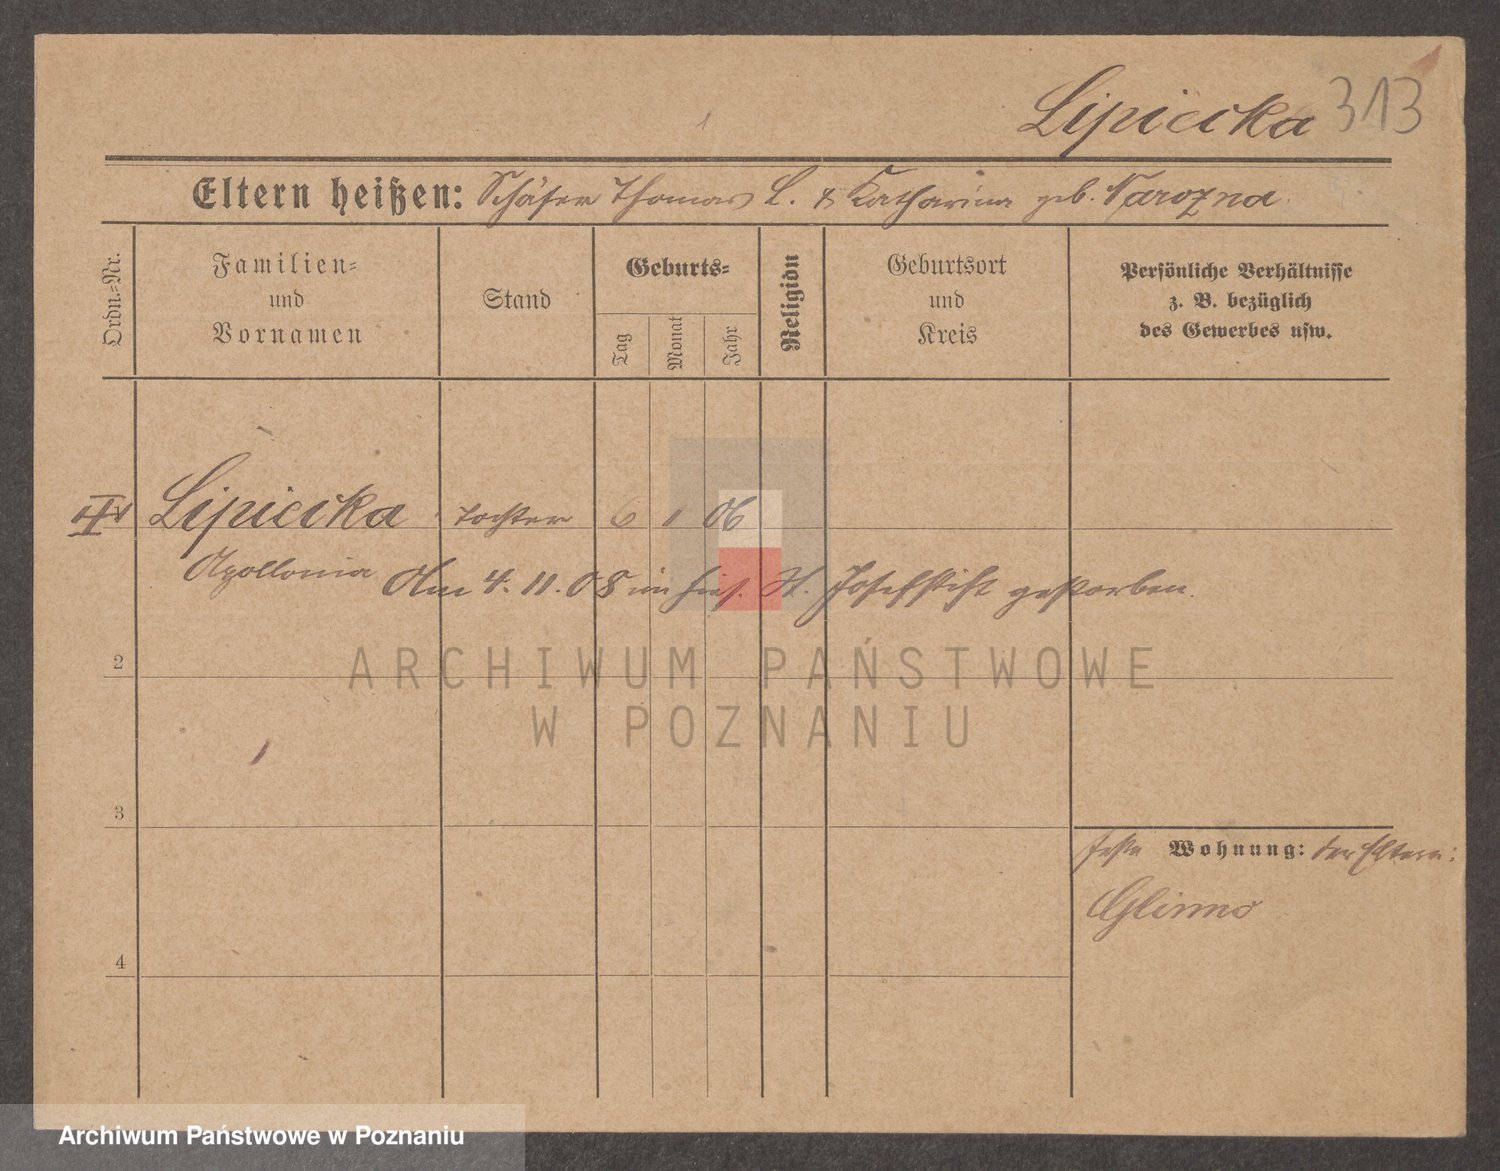 Lipiecka 313
Eltern heißen: Schäfer Thomas L. & Katharina geb. Narozna.
Ordn.=Nr.
Familien=
und
Vornamen
Stand
Geburts=
Tag
Monat
Jahr
Religion
Geburtsort
und
Kreis
Persönliche Verhältnisse
z. B. bezüglich
des Gewerbes usw.
Lipiecka Tochter 6 1 06
Apollonia Am 4. 11. 08 im hies. St. Josefstift gestorben.
2
ARCHIWUM PAŃSTWOWE
W POZNANIU
3
feste Wohnung: der Eltern:
Glinno
4
Archiwum Państwowe w Poznaniu